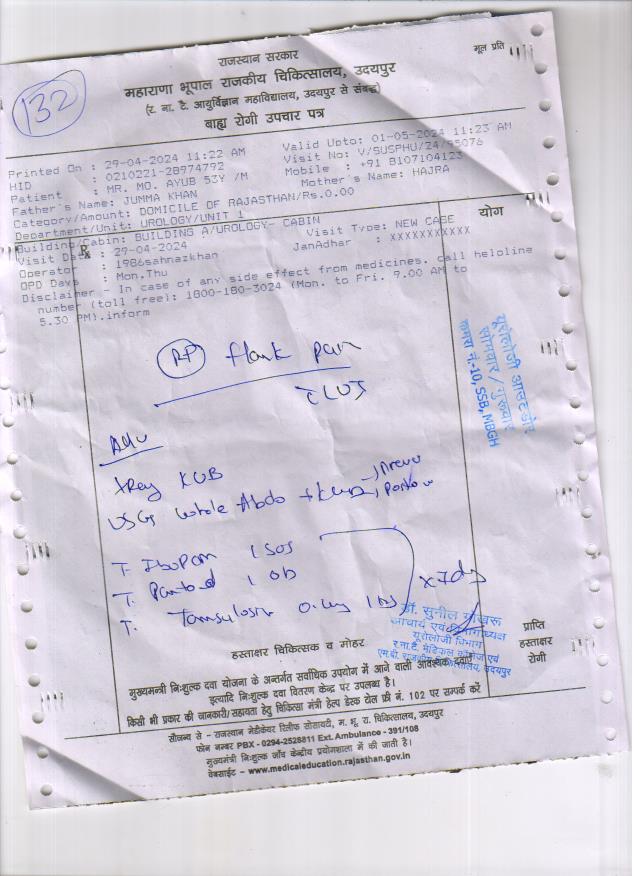 राजस्थान सरकार
मूल प्रति
132
महाराणा भूपाल राजकीय चिकित्सालय, उदयपुर
(र. ना. टै. आयुर्विज्ञान महाविद्यालय, उदयपुर से संबद्ध)
बाह्य रोगी उपचार पत्र
Printed On : 29-04-2024 11:22 AM Valid Upto: 01-05-24 11:23 AM
HID : 0210221-28974792 Visit No: V/SUSPHU/24/95076
Patient : MR. MO. AYUB 53Y /M Mobile : +91 8107104123
Father's Name: JUMMA KHAN Mother's Name: HAJRA
Category/Amount: DOMICILE OF RAJASTHAN/Rs.0.00
Department/Unit: UROLOGY/UNIT 1
Building/Cabin: BUILDING A/UROLOGY- CABIN Visit Type: NEW CASE
योग
Rx
Visit Date : 29-04-2024 JanAdhar : XXXXXXXXXXX
Operator : 1986sahnazkhan
OPD Days : Mon,Thu
Disclaimer - In case of any side effect from medicines. call heloline
number (toll free): 1800-180-3024 (Mon. to Fri. 9.00 AM to
5.30 PM).inform
यूरोलोजी आउटडोर
सोमवार / गुरूवार
कमरा नं.-10, SSB, MBGH
flank pain
Adv
Xray KUB
USG Whole Abdo + KUB
T. 1 SOS
T. 1 OD
T. Tamsulosin 0.4mg x 7dy
डॉ. सुनील गोखरू
आचार्य एवं विभागाध्यक्ष
यूरोलोजी विभाग
र.ना.टै. मेडिकल कॉलेज एवं
एम.बी. राजकीय चिकित्सालय, उदयपुर
हस्ताक्षर चिकित्सक व मोहर
प्राप्ति
हस्ताक्षर
रोगी
मुख्यमन्त्री निःशुल्क दवा योजना के अन्तर्गत सर्वाधिक उपयोग में आने वाली आवश्यक दवाएं
इत्यादि निःशुल्क दवा वितरण केन्द्र पर उपलब्ध है।
किसी भी प्रकार की जानकारी/सहायता हेतु चिकित्सा मंत्री हेल्प डेस्क टोल फ्री नं. 102 पर सम्पर्क करें
सौजन्य से - राजस्थान मेडीकेयर रिलीफ सोसायटी, म. भू. रा. चिकित्सालय, उदयपुर
फोन नम्बर PBX - 0294-2528811 Ext. Ambulance - 391/108
मुख्यमंत्री निःशुल्क जाँच केन्द्रीय प्रयोगशाला में की जाती है।
वेबसाईट - www.medicaleducation.rajasthan.gov.in